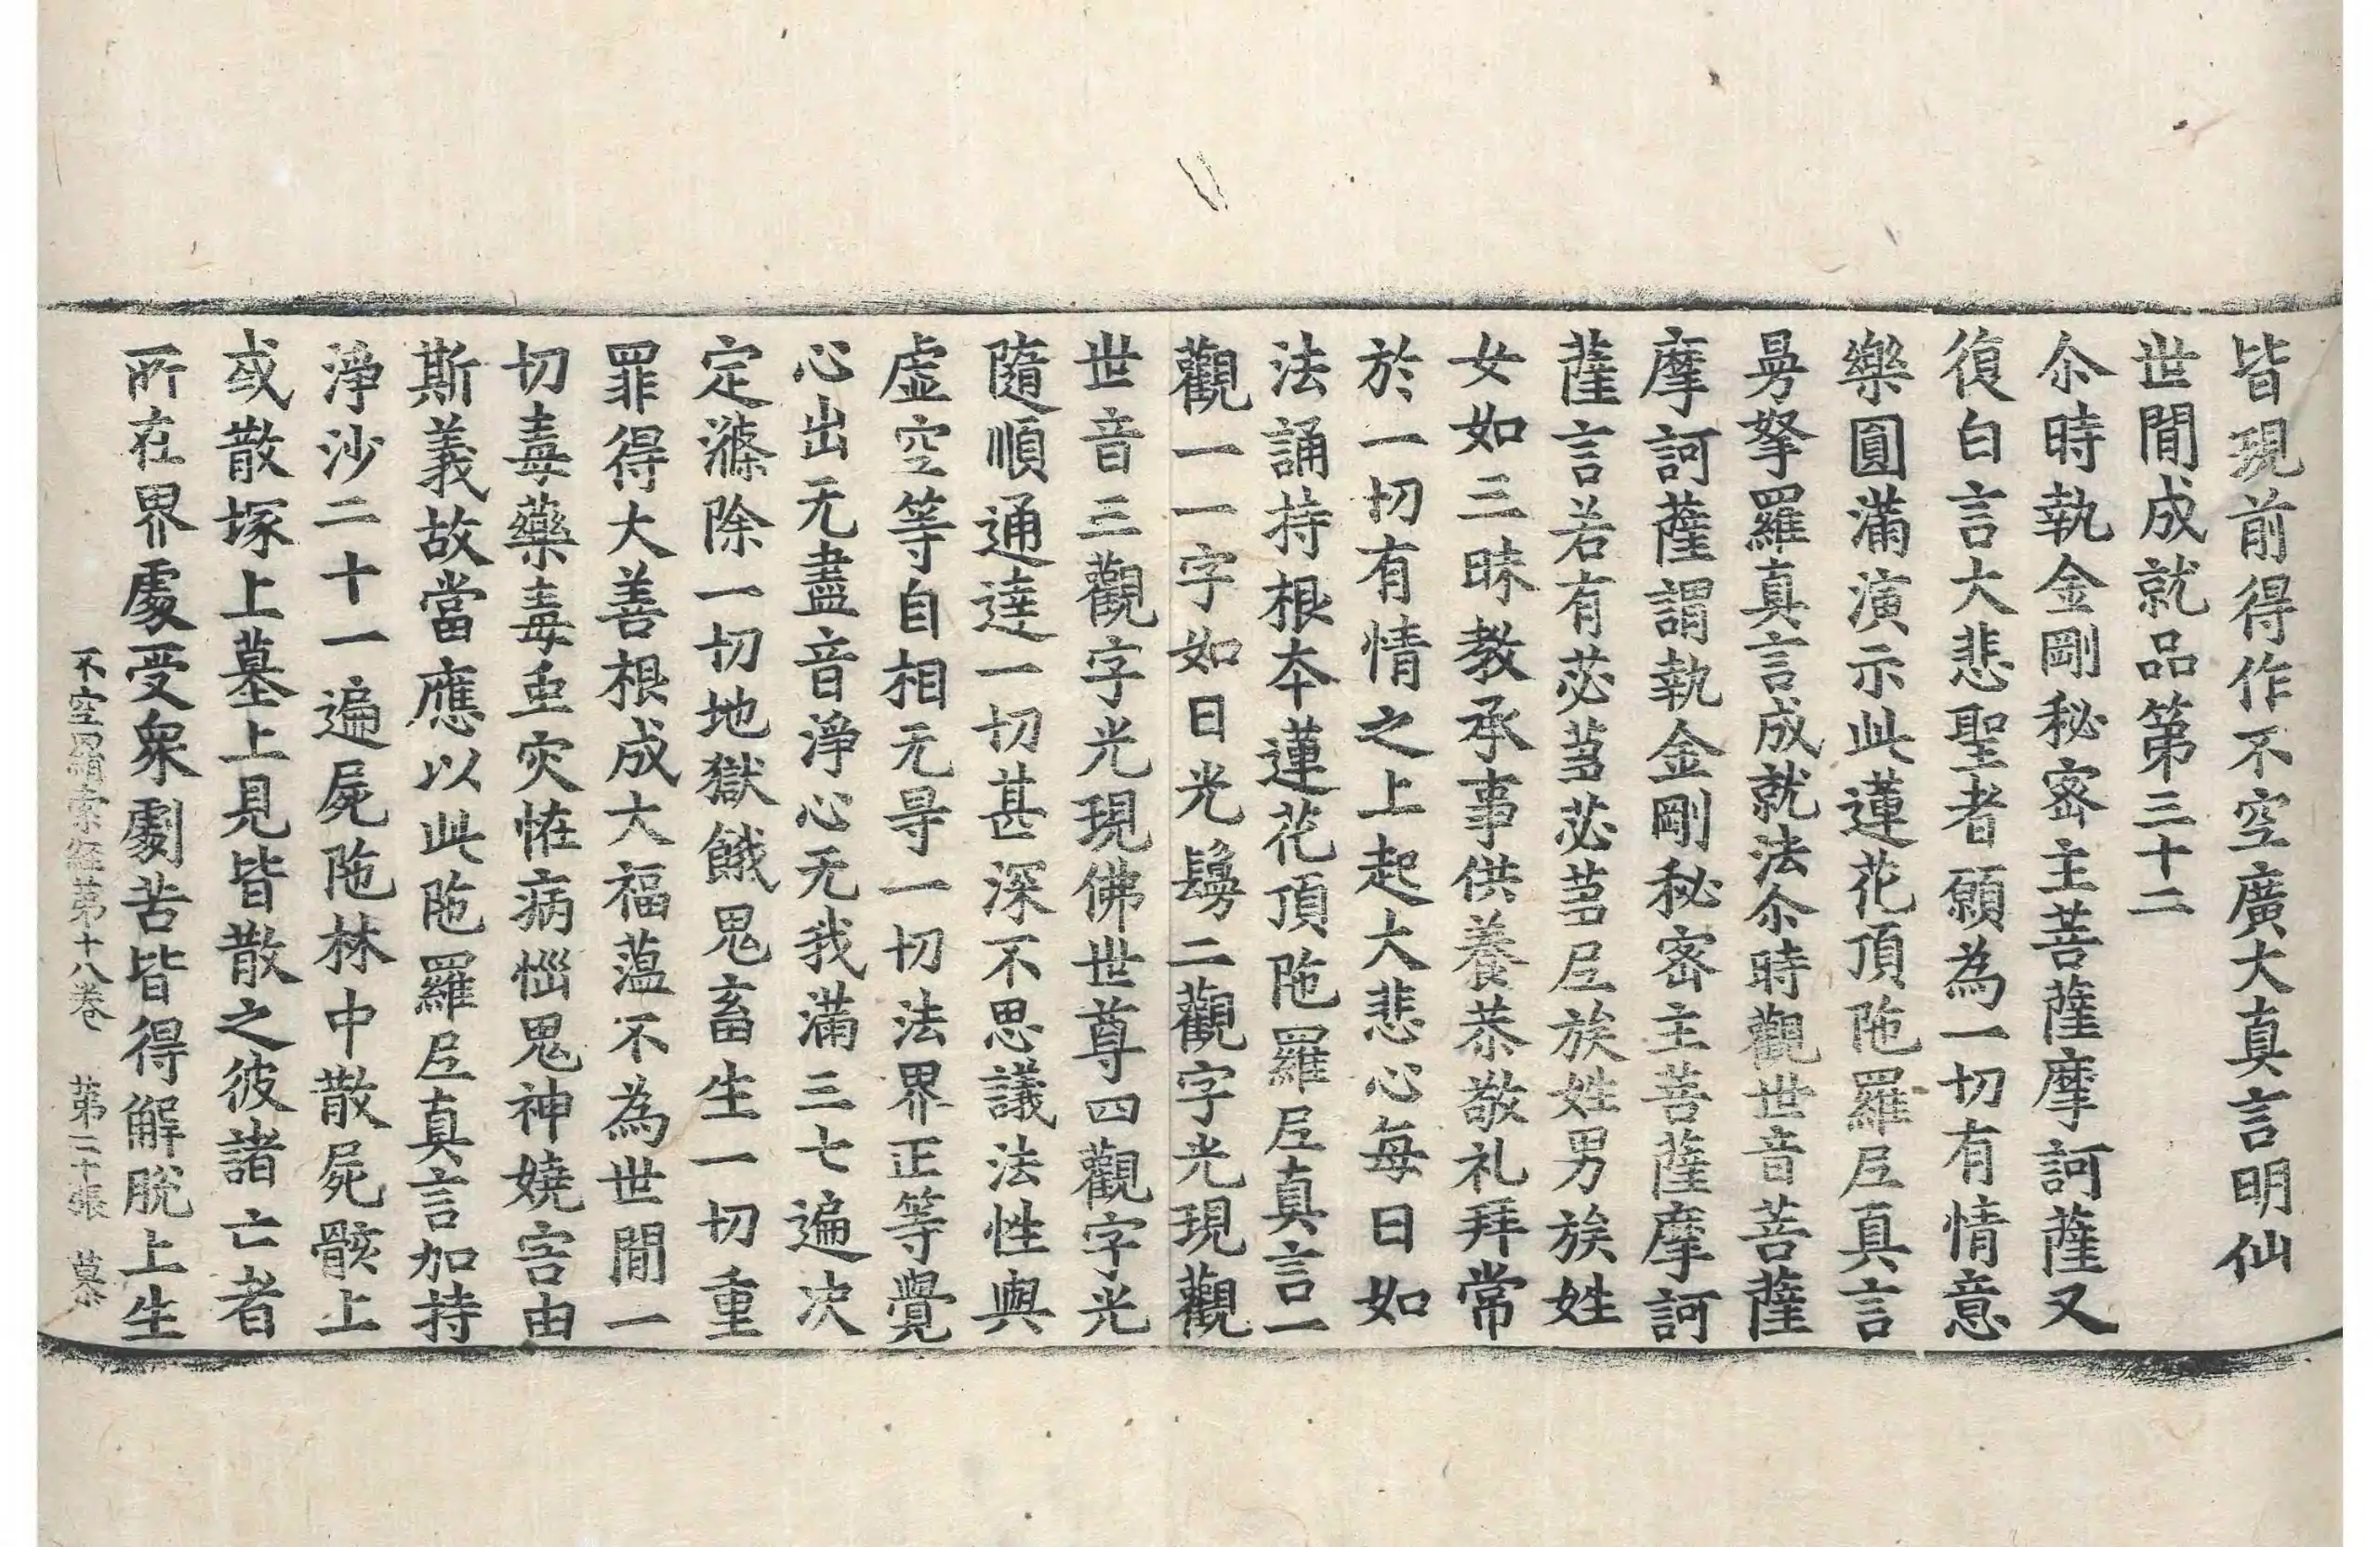 皆現前得作不空廣大真言明仙
世間成就品第三十二
尒時執金剛秘密主菩薩摩訶薩又
復白言大悲聖者願為一切有情意
樂圓滿演示此蓮花頂陁羅𡰱真言
㬅拏羅真言成就法尒時觀世音菩薩
摩訶薩謂執金剛秘密主菩薩摩訶
薩言若有苾蒭苾蒭𡰱族姓男族姓
女如三昧教承事供養恭敬礼拜常
於一切有情之上起大悲心每日如
法誦持根夲蓮花頂陁羅𡰱真言一
觀一一字如日光鬘二觀字光現觀
世音三觀字光現佛世尊四觀字光
隨順通達一切甚深不思議法性與
虛空等自相无㝵一切法界正等覺
心出无盡音淨心无我滿三七遍決
定滌除一切地獄餓鬼畜生一切重
罪得大善根成大福蕰不為世間一
切毒藥毒䖝灾恠病惱鬼神嬈害由
斯義故當應以此陁羅𡰱真言加持
淨沙二十一遍屍陁林中散屍骸上
或散塚上墓上見皆散之彼諸亡者
所在界處受衆劇苦皆得解脫上生
不空羂索經第十八卷　第二十張　慕